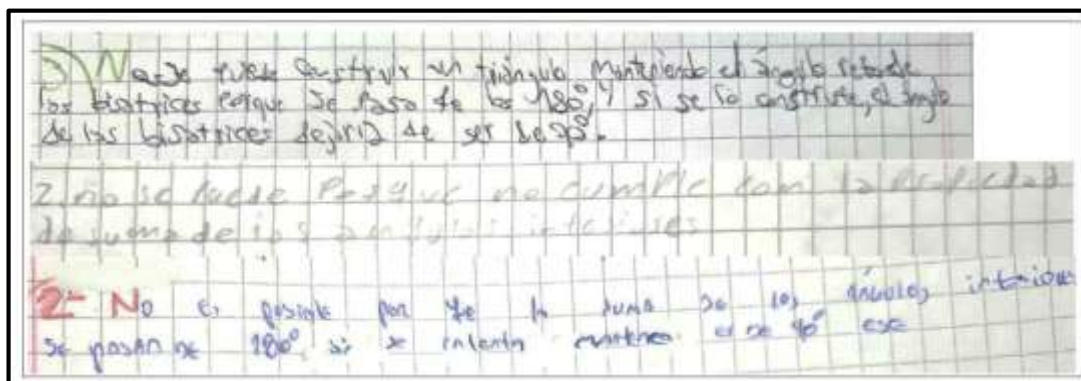 No se puede construir un triángulo manteniendo el ángulo recto de
las bisectrices porque se paso de los 180°, y si se lo construye, el angulo
de las bisectrices dejaria de ser de 90°.
2. no se puede Porque no cumple con la Propiedad
de suma de los angulos interiores
2- No es posible por que la suma de los ángulos interiores
se pasan de 180° si se intenta mantener el de 90° ese